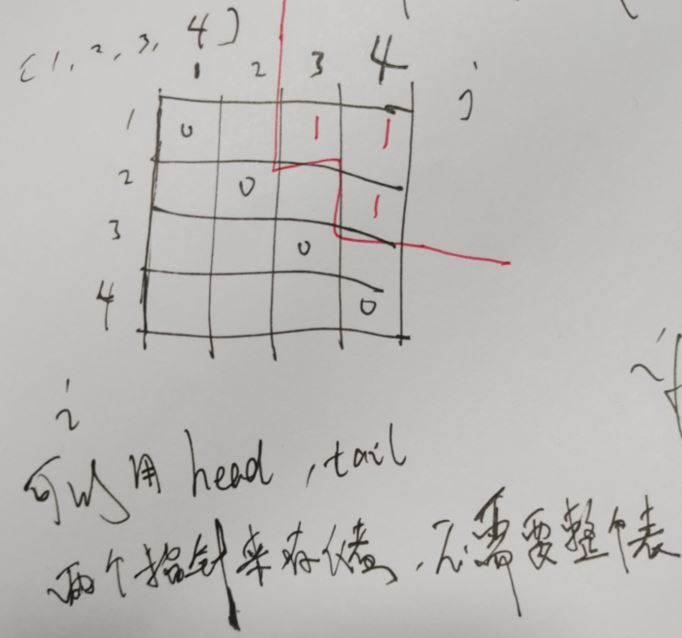 {1, 2, 3, 4}
1 2 3 4 j
1 0 1 1
2 0 1
3 0
4 0
i
可以用 head, tail
两个指针来存储,不需要整个表